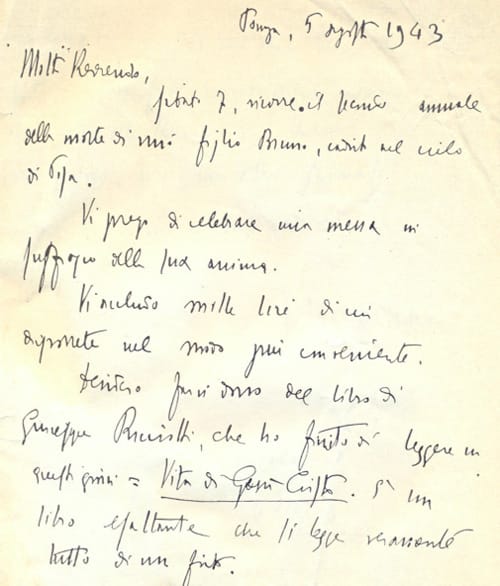 Ponza, 5 agosto 1943
Molto Reverendo,
sabato 7, ricorre il secondo annuale
della morte di mio figlio Bruno, caduto nel cielo
di Pisa.
Vi prego di celebrare una messa in
suffragio della sua anima.
Vi accludo mille lire di cui
disporrete nel modo più conveniente.
Desidero farvi dono del libro di
Giuseppe Ricciotti, che ho finito di leggere in
questi giorni = Vita di Gesù Cristo. È un
libro esaltante che si legge veramente
tutto di un fiato.